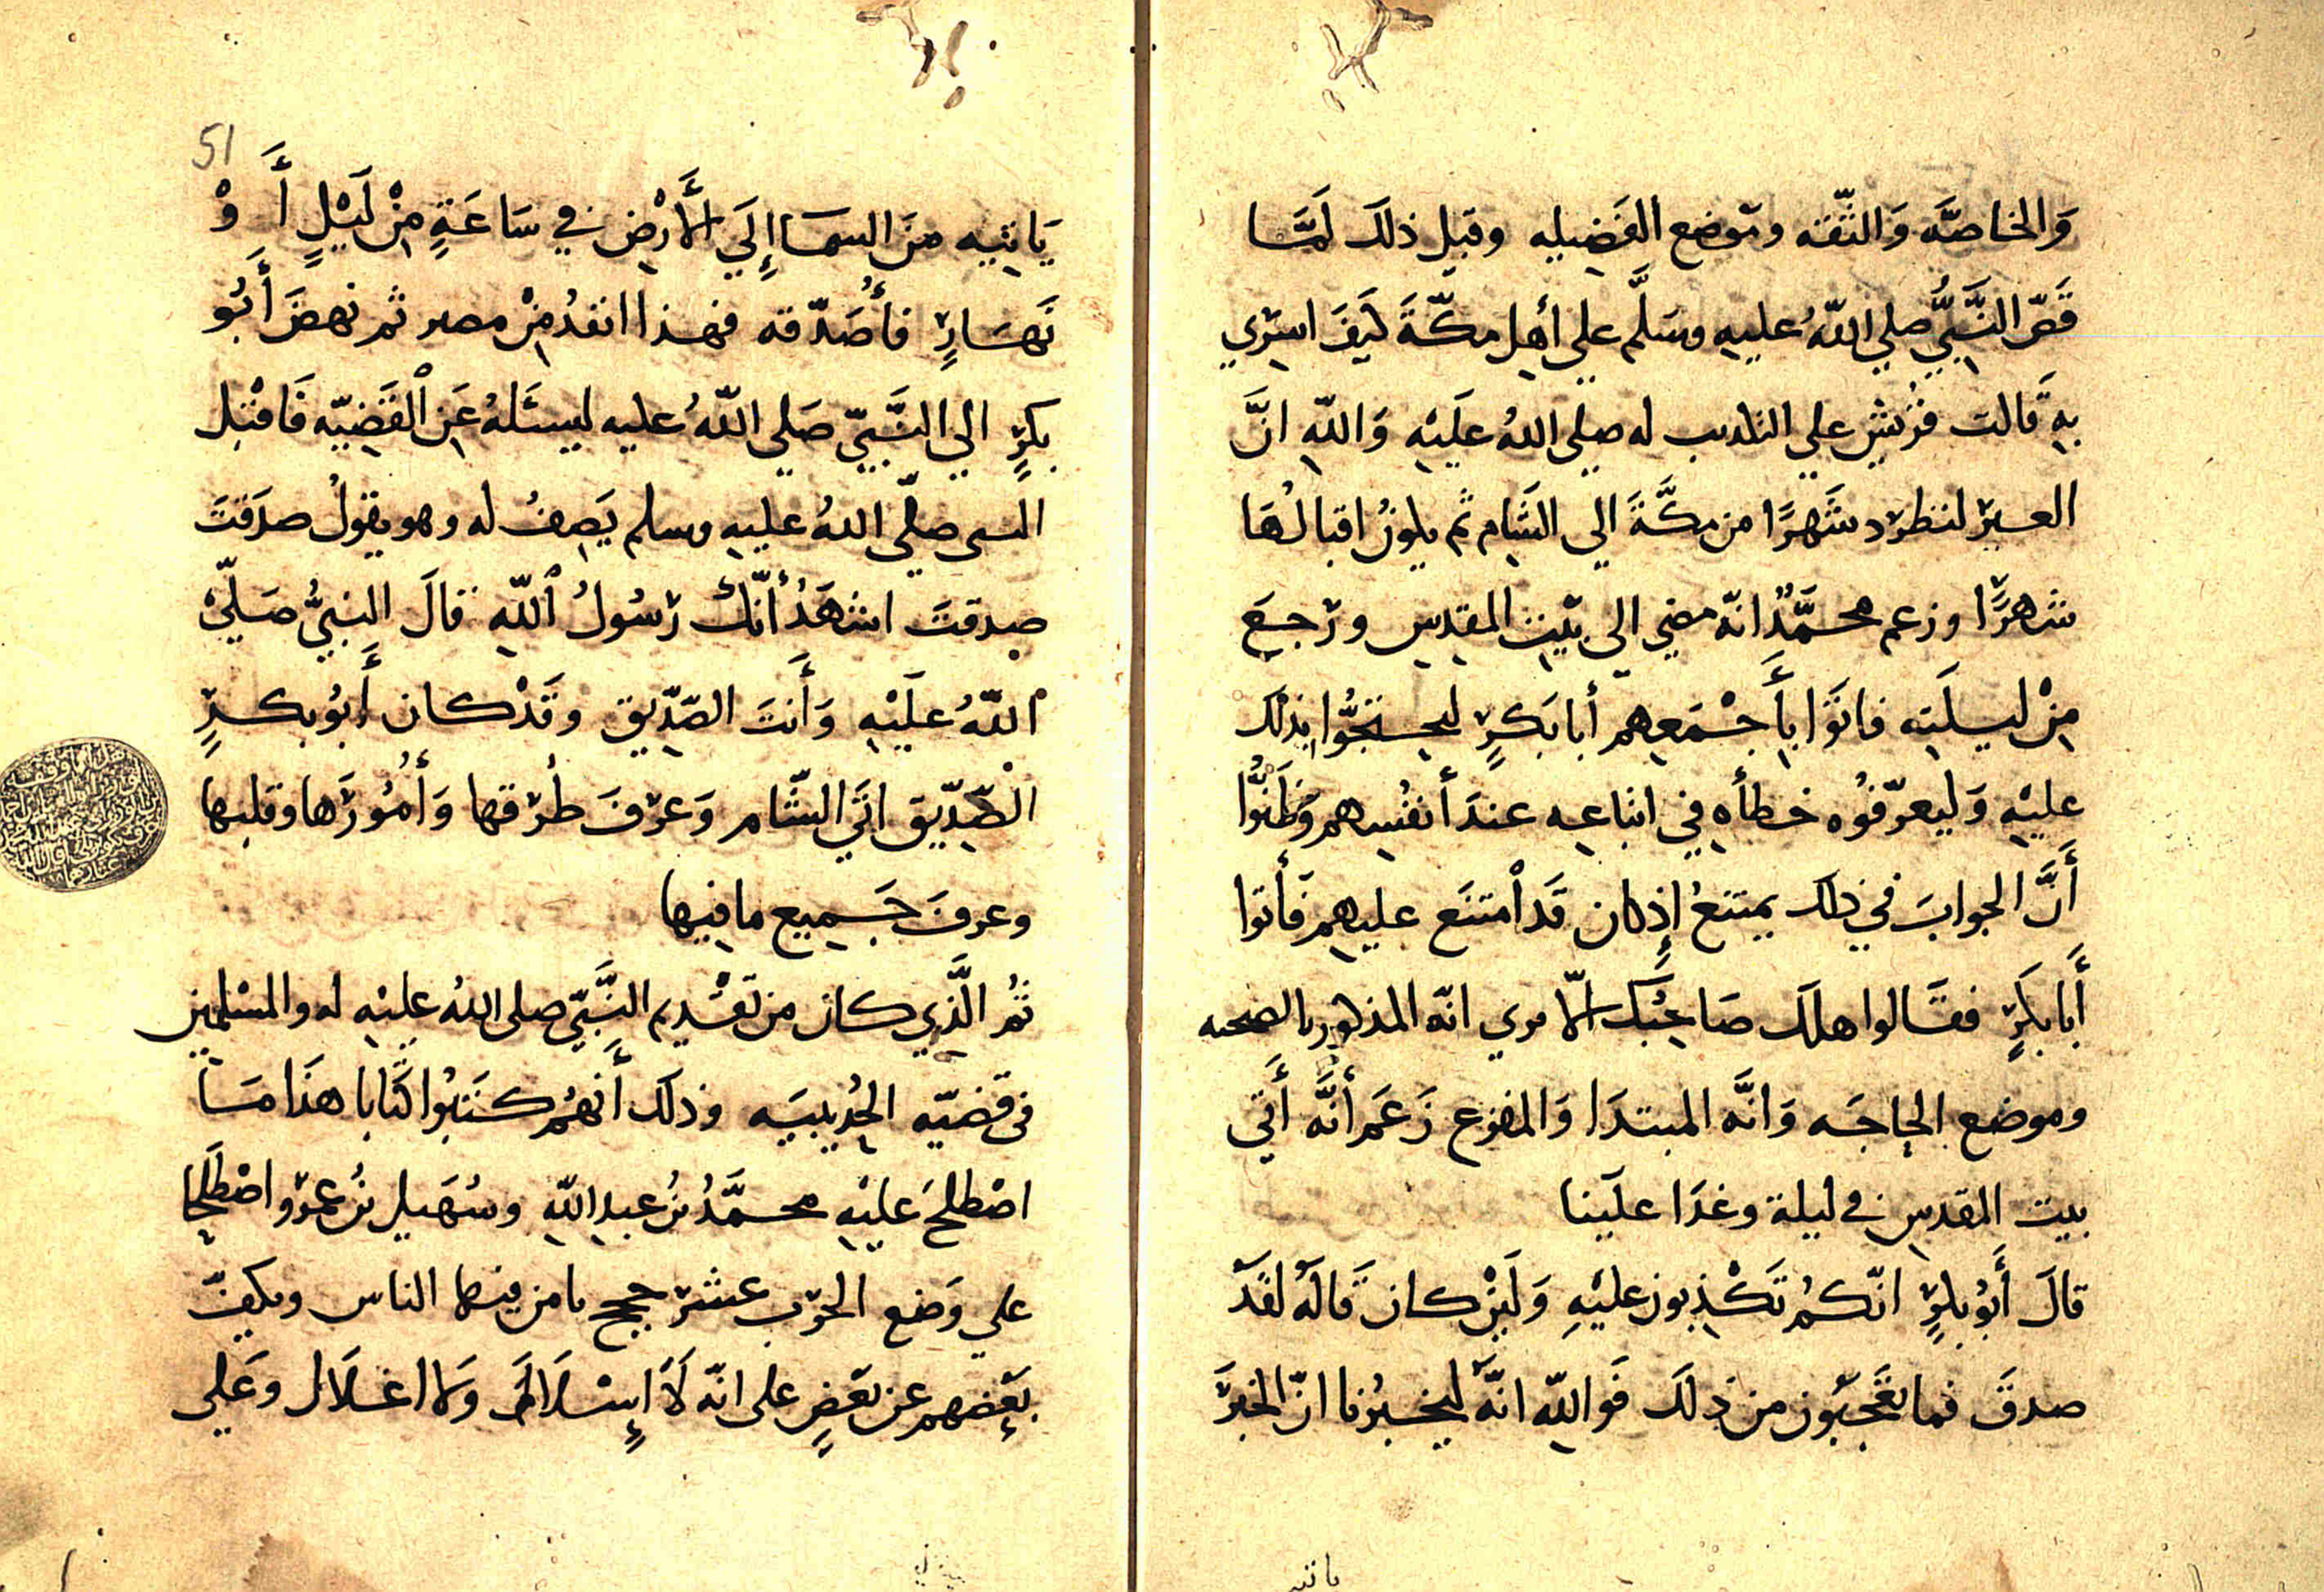 وَالخاصَّه وَالثّقه وموضع الفَضِيله وقبل ذلك لَمَّا
قَصّ النَّبيُّ صلي اللّهُ عليهِ وسَلَّم علي أهل مكّةَ كَيفَ اسرِي
بهِ قالت قريش علي التكذيب له صلي اللهُ عَلَيْهِ وَاللّهِ انَّ
العير لتطرد شَهرًا من مكَّةَ الي الشَّام ثم يكون اقبالُهَا
شهرًا وزعم محمَّدٌ انّه مضي الي بَيت المقدس ورجع
مِنْ ليلَته فاتوَا بِأَجْمَعِهم أبا بَكرٍ ليحتجُّوا بذلك
عليْهِ وَليعرّفُوه خطأهِ في اتباعه عندَ أنفُسِهم وَظَنُّوا
أَنَّ الجوابَ في ذلك يمتنعُ إِذ كان قَد اْمتنَع عليهم فأتوا
أَبا بكَرٍ فقالوا هلك صَاحبُك الّا مري انّه المذكور بالصحبه
وموضع الحاجَه وَانَّه المبتدَا وَالمفزع زَعَم أنَّه أَتي
بيت المقدسِ في ليلة وغدَا علَينا
قالَ أَبُو بكرٍ انّكُم تَكْذِبون عليْهِ وَلَئِنْ كان قَالهُ لقَدْ
صدقَ فما يعجبُون من ذلك فَواللّهِ انّهَ ليخبرُنا انّ الخبَرَ
51
يَاتِيه منَ السمَا إِلَي الأَرْضِ في سَاعَةٍ مِنْ لَيْلٍ أَ وْ
نَهَارٍ فأُصَدّقه فهذا ابعدُ مِنْ مصر ثم نهضَ أَبُو
بكرٍ الي النَّبيّ صَلي اللّهُ عليه ليسئَلهُ عَن الْقَضِيّه فَاقْبل
النبي صلّي اللهُ عليهِ وسلم يَصِفُ له وهو يقولُ صدَقتَ
صدقتَ اشهَدُ أنّك رَسُولُ اللّهِ قالَ النبيُّ صَلّي
اللّهُ علَيْهِ وَأَنتَ الصّدِّيق وقَدْ كان أَبُو بكرٍ
الصِّدّيق اتَي الشّام وَعرفَ طرقها وَأُمُورَها وقلبها
وعرفَ جَميع ما فيها
ثمُ الَّذِي كان من تَقْديم النَّبيّ صلي اللهُ عليْهِ له والمسْلمين
في قَضيّه الحُدَيبيَه وذلكَ أَنهُم كتَبُوا كتَابا هذَا مَا
اصْطلحَ عليْهِ محمَّدُ بنُ عبدِ اللّهِ وسُهَيل بنُ عمْرو اصْطَلحا
علي وَضع الحرْب عشرَ حجج يامن فيها الناس ويكفّ
بعْضهم عن بعَضٍ علي انّه لاَ إِسْلاَلَ وَلا اغلاَل وعَلي
ياتيه